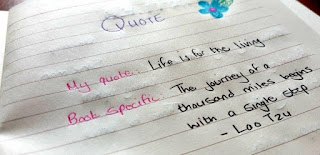 QUOTE
My quote. Life is for the living
Book Specific The journey of a
thousand miles begins
with a single step
- Lao Tzu